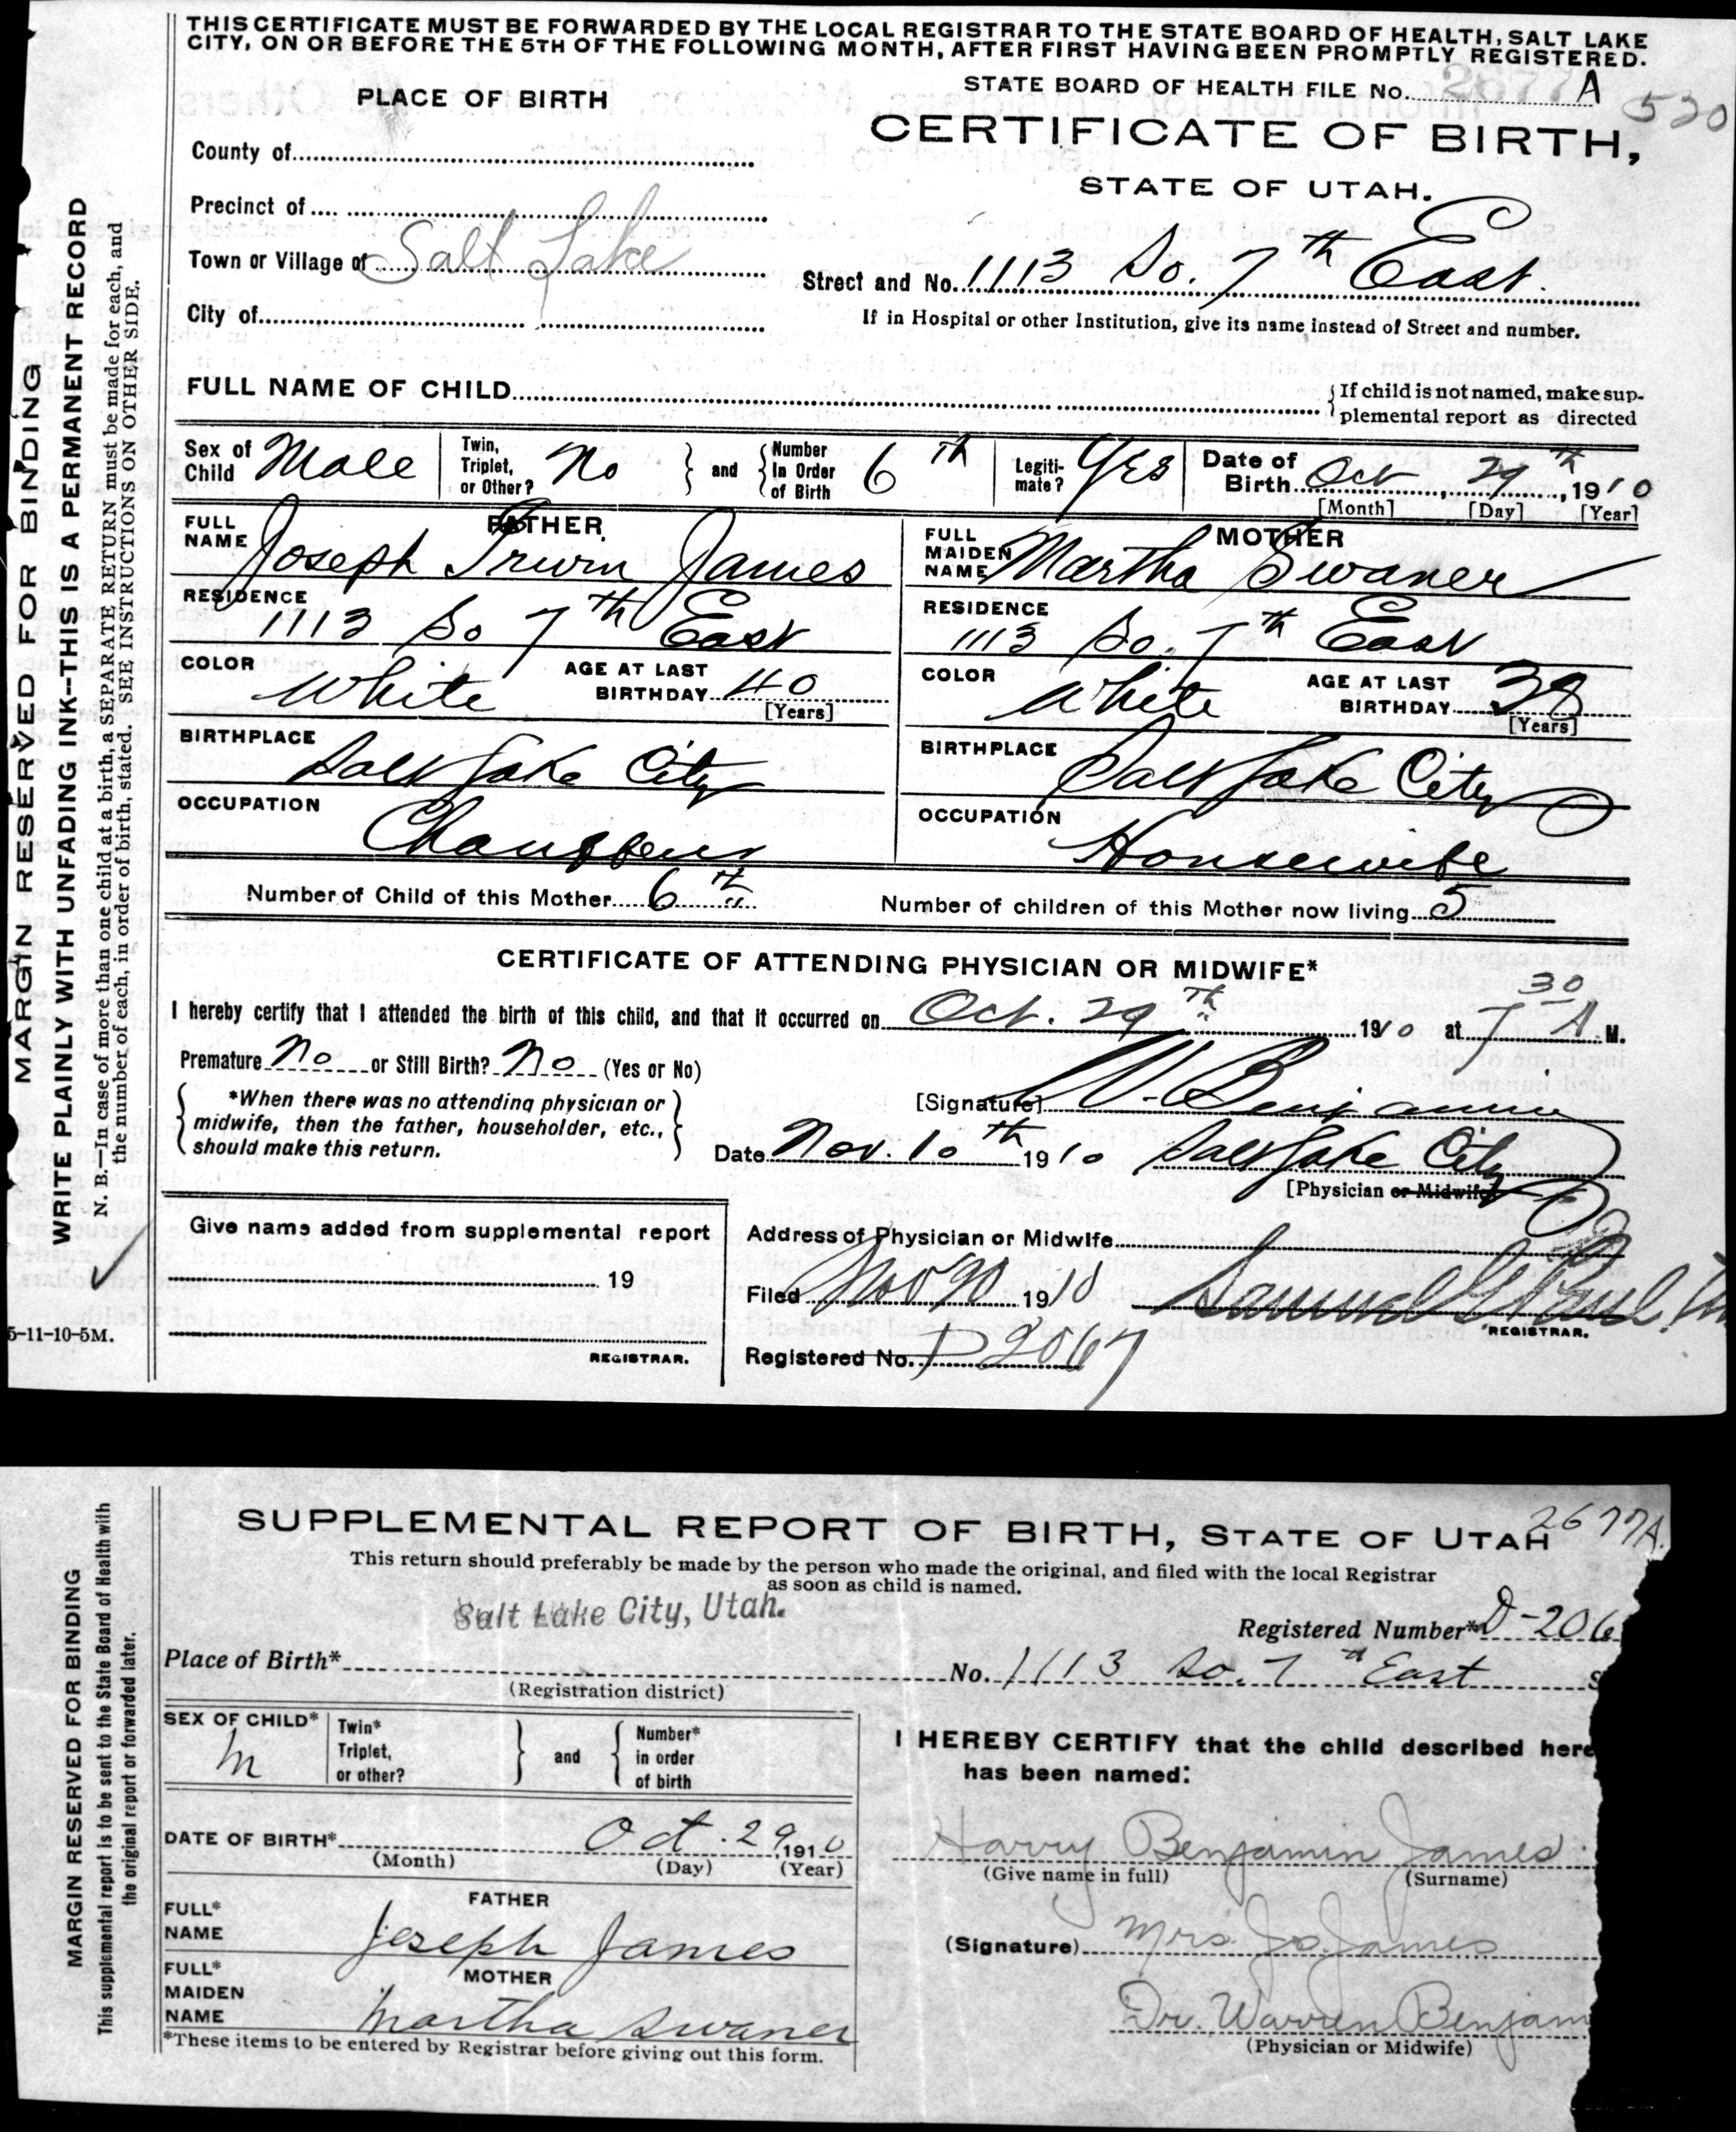 THIS CERTIFICATE MUST BE FORWARDED BY THE LOCAL REGISTRAR TO THE STATE BOARD OF HEALTH, SALT LAKE
CITY, ON OR BEFORE THE 5TH OF THE FOLLOWING MONTH, AFTER FIRST HAVING BEEN PROMPTLY REGISTERED.
STATE BOARD OF HEALTH FILE No. 2677 A
530
PLACE OF BIRTH
CERTIFICATE OF BIRTH,
STATE OF UTAH.
County of
Precinct of
Town or Village of Salt Lake
Street and No. 1113 So. 7th East.
City of
If in Hospital or other Institution, give its name instead of Street and number.
FULL NAME OF CHILD
{If child is not named, make sup-
plemental report as directed
Sex of Child Male
Twin, Triplet, or Other? No } and { Number In Order of Birth 6th
Legiti-mate? Yes
Date of Birth Oct, 29th, 1910
[Month] [Day] [Year]
FATHER
FULL NAME Joseph Irwin James
RESIDENCE 1113 So 7th East
COLOR White AGE AT LAST BIRTHDAY 40
[Years]
BIRTHPLACE Salt Lake City
OCCUPATION Chauffeur
MOTHER
FULL MAIDEN NAME Martha Swaner
RESIDENCE 1113 So. 7th East
COLOR White AGE AT LAST BIRTHDAY 38
[Years]
BIRTHPLACE Salt Lake City
OCCUPATION Housewife
Number of Child of this Mother 6th
Number of children of this Mother now living 5
CERTIFICATE OF ATTENDING PHYSICIAN OR MIDWIFE*
I hereby certify that I attended the birth of this child, and that it occurred on Oct. 29th 1910 at 7 30 A M.
Premature No or Still Birth? No (Yes or No)
{ *When there was no attending physician or
midwife, then the father, householder, etc.,
should make this return. }
[Signature] W. Benjamin
Date Nov. 10th 1910 Salt Lake City
[Physician or Midwife]
Give name added from supplemental report
19
REGISTRAR.
Address of Physician or Midwife
Filed Nov 1910 Samuel G Paul
REGISTRAR.
Registered No. D 2067
MARGIN RESERVED FOR BINDING
WRITE PLAINLY WITH UNFADING INK--THIS IS A PERMANENT RECORD
N. B.—In case of more than one child at a birth, a SEPARATE RETURN must be made for each, and
the number of each, in order of birth, stated. SEE INSTRUCTIONS ON OTHER SIDE.
5-11-10-5M.
2677A.
SUPPLEMENTAL REPORT OF BIRTH, STATE OF UTAH
This return should preferably be made by the person who made the original, and filed with the local Registrar
as soon as child is named.
Salt Lake City, Utah.
Registered Number* D-206
Place of Birth* No. 1113 So. 7th East S
(Registration district)
SEX OF CHILD* M
Twin* Triplet, or other? } and { Number* in order of birth
DATE OF BIRTH* Oct. 29, 1910
(Month) (Day) (Year)
FATHER
FULL* NAME Joseph James
MOTHER
FULL* MAIDEN NAME Martha Swaner
*These items to be entered by Registrar before giving out this form.
I HEREBY CERTIFY that the child described here
has been named:
Harry Benjamin James
(Give name in full) (Surname)
(Signature) Mrs. Jos. James
Dr. Warren Benjam
(Physician or Midwife)
MARGIN RESERVED FOR BINDING
This supplemental report is to be sent to the State Board of Health with
the original report or forwarded later.